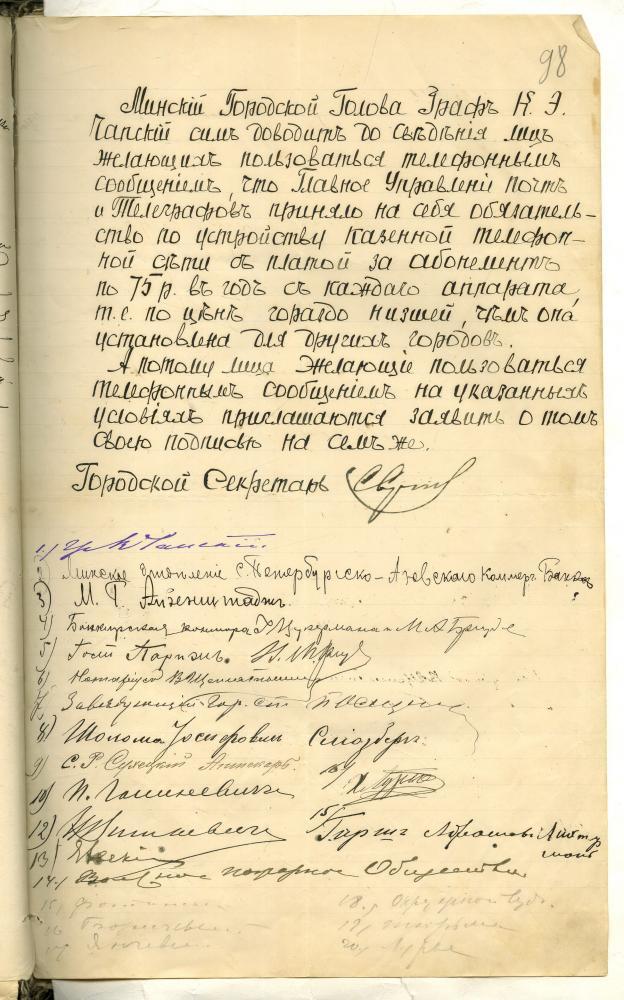 98
Минскій Городской Голова Графъ К. Э.
Чапскій симъ доводитъ до свѣдѣнія лицъ
желающихъ пользоваться телефоннымъ
сообщеніемъ, что Главное Управленіе почтъ
и Телеграфовъ приняло на себя обязатель-
ство по устройству казенной телефон-
ной сѣти съ платой за абонементъ
по 75 р. въ годъ съ каждаго аппарата,
т. е. по цѣнѣ гораздо низшей, чѣмъ она
установлена для другихъ городовъ.
А потому лица желающіе пользоваться
телефоннымъ сообщеніемъ на указанныхъ
условіяхъ приглашаются заявить о томъ
своею подписью на семъ же.
Городской Секретарь
1) Гр. К Чапскій
2) Минское отдѣленіе С. Петербургско-Азовскаго Коммерч. Банка
3) М. Г. Айзенштадтъ.
4) Банкирская контора
5) Гост Парижъ.
6) Нотаріусъ
7) Завѣдующій Гор. ст
8) Шолома
9) С. Р. Сухецкій Аптекарь
10) П.
12)
13)
14) Вольное пожарное Общество
15)
15)
16
17)
18.) Окружной судъ.
19) тюрьма
20) Лурье